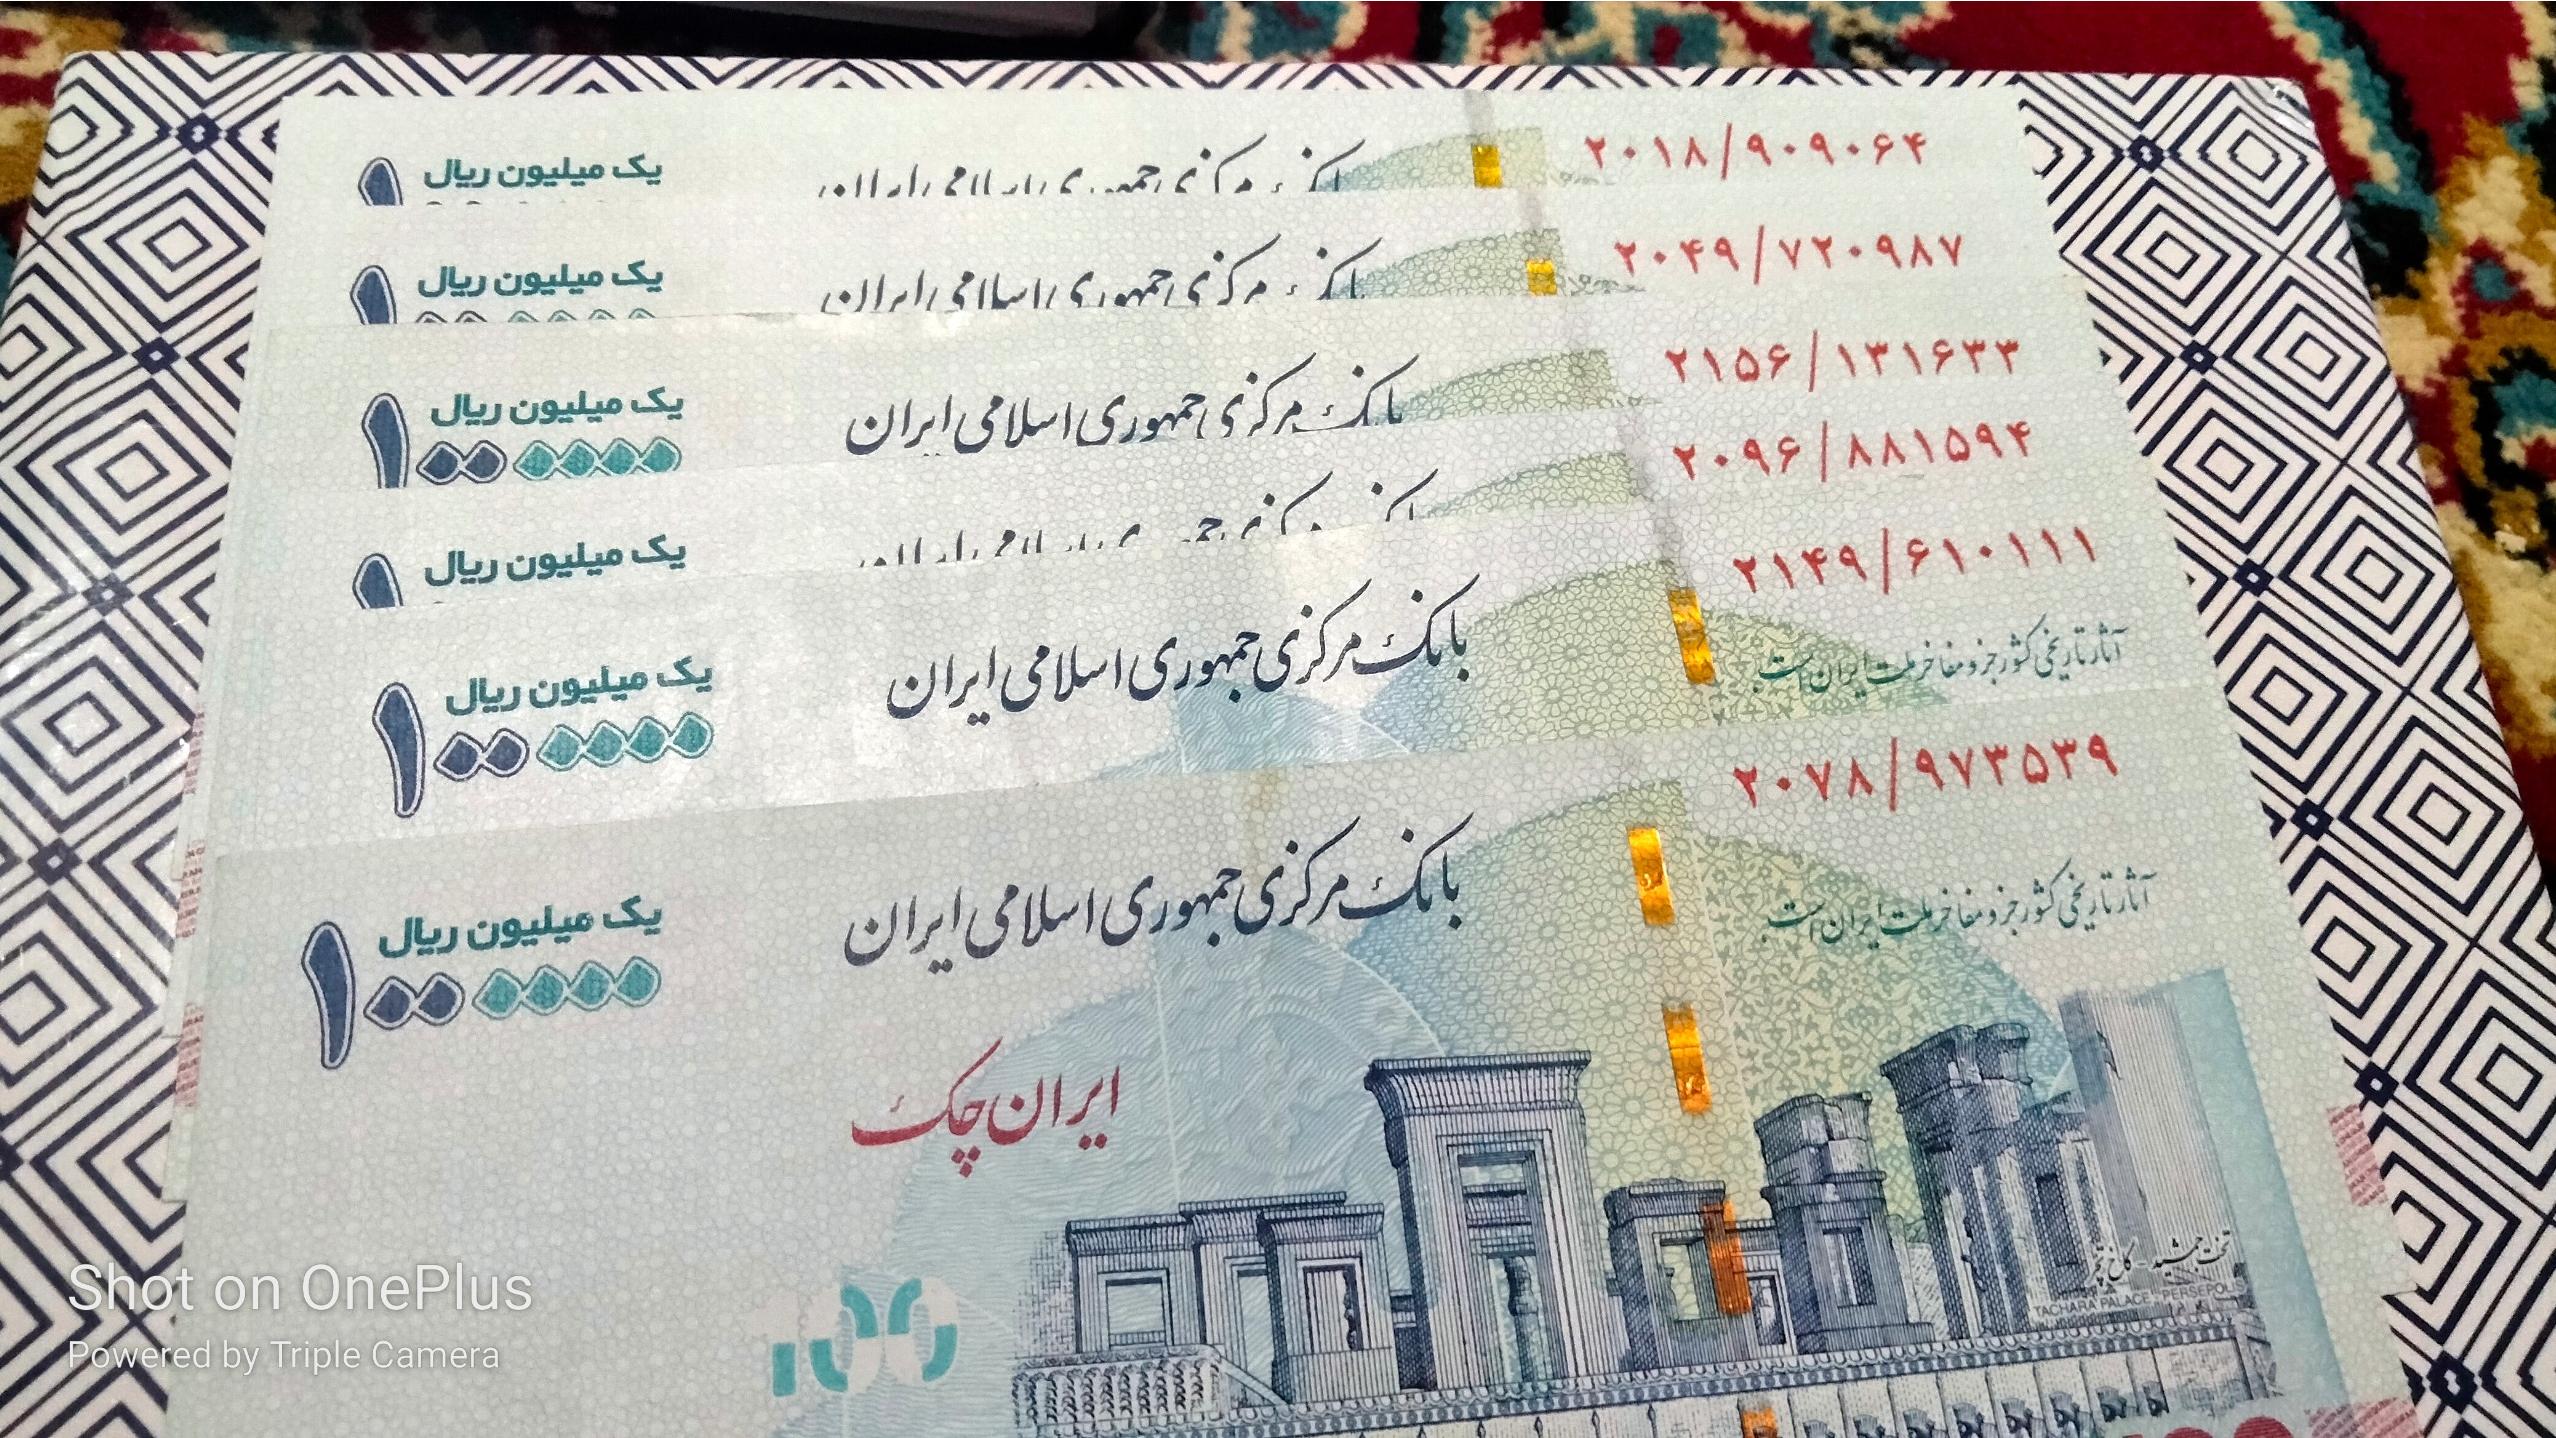 یک میلیون ریال
۲۰۱۸/۹۰۹۰۶۴
یک میلیون ریال
۲۰۴۹/۷۲۰۹۸۷
بانک مرکزی جمهوری اسلامی ایران
۲۱۵۶/۱۳۱۶۳۳
یک میلیون ریال
بانک مرکزی جمهوری اسلامی ایران
۱۰۰۰۰۰۰
۲۰۹۶/۸۸۱۵۹۴
یک میلیون ریال
۲۱۴۹/۶۱۰۱۱۱
یک میلیون ریال
بانک مرکزی جمهوری اسلامی ایران
آثار تاریخی کشور جزو مفاخر ملت ایران است
۱۰۰۰۰۰۰
۲۰۷۸/۹۷۳۵۳۹
یک میلیون ریال
بانک مرکزی جمهوری اسلامی ایران
آثار تاریخی کشور جزو مفاخر ملت ایران است
۱۰۰۰۰۰۰
ایران چک
تخت جمشید - کاخ تچر
TACHARA PALACE - PERSEPOLIS
100
Shot on OnePlus
Powered by Triple Camera